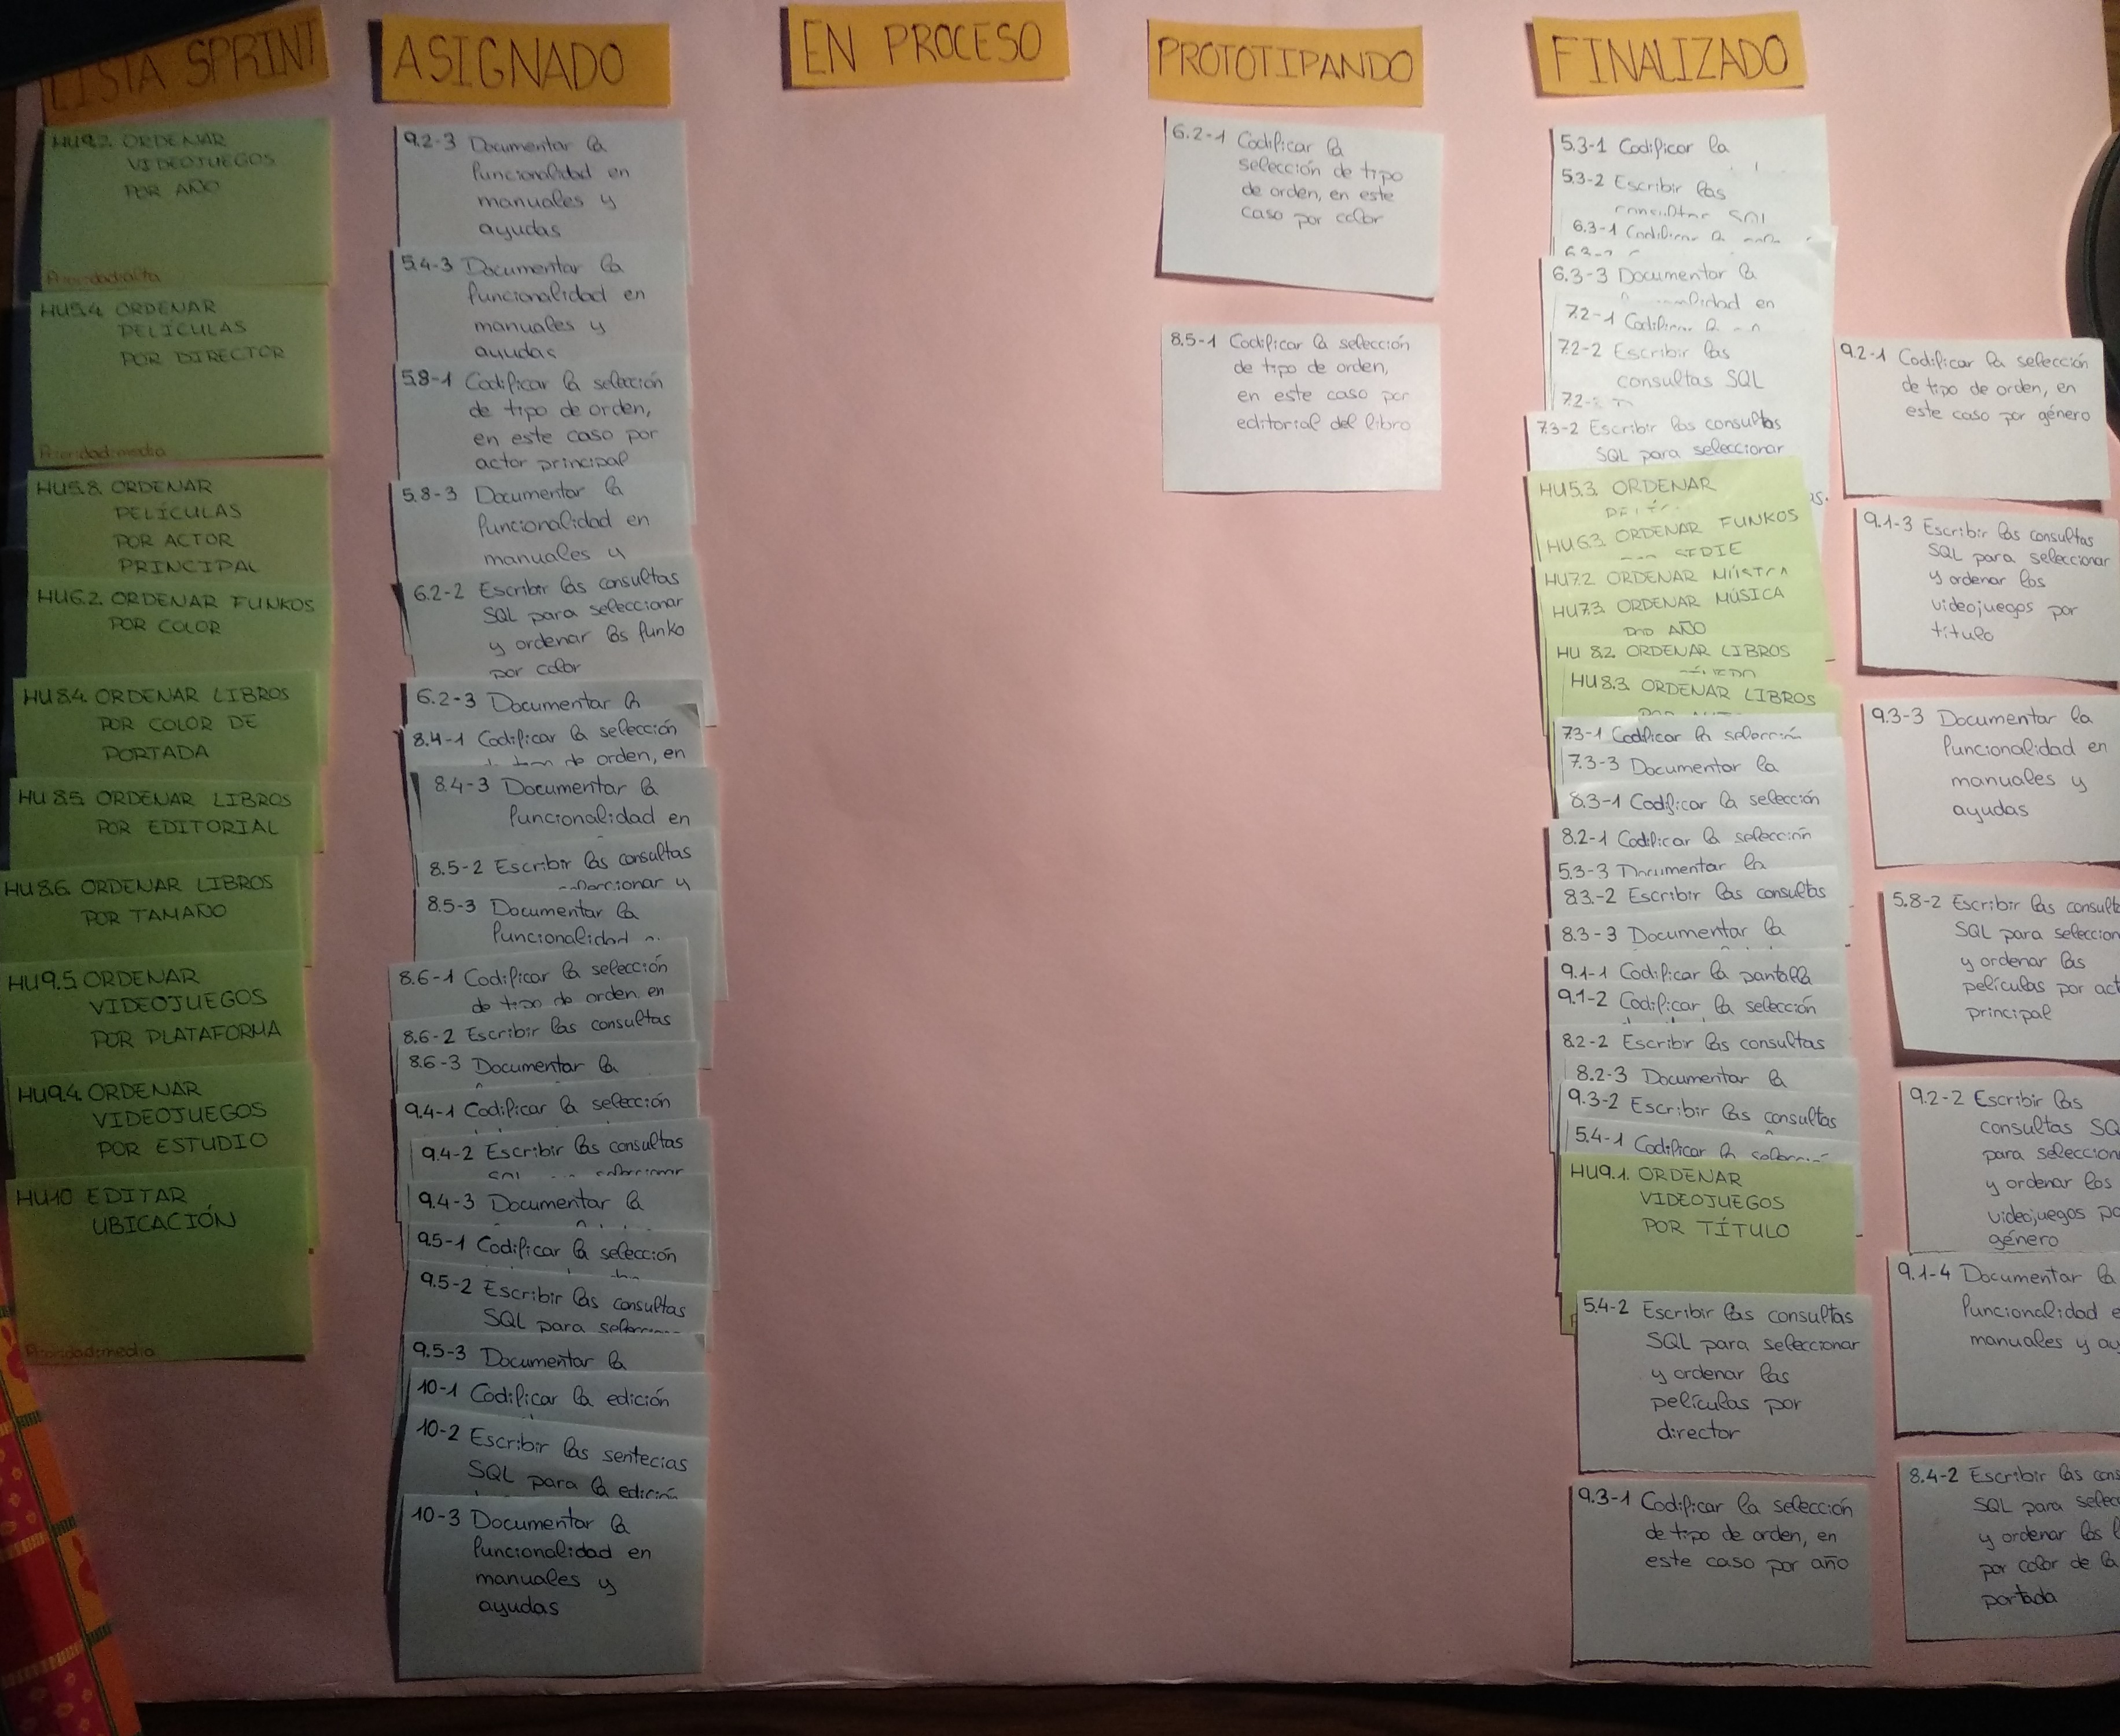 LISTA SPRINT
HU9.2. ORDENAR
VIDEOJUEGOS
POR AÑO
Prioridad:alta
HU5.4. ORDENAR
PELÍCULAS
POR DIRECTOR
Prioridad:media
HU5.8. ORDENAR
PELÍCULAS
POR ACTOR
PRINCIPAL
HU6.2. ORDENAR FUNKOS
POR COLOR
HU8.4. ORDENAR LIBROS
POR COLOR DE
PORTADA
HU 8.5. ORDENAR LIBROS
POR EDITORIAL
HU8.6. ORDENAR LIBROS
POR TAMAÑO
HU9.5. ORDENAR
VIDEOJUEGOS
POR PLATAFORMA
HU9.4. ORDENAR
VIDEOJUEGOS
POR ESTUDIO
HU10 EDITAR
UBICACIÓN
Prioridad:media
ASIGNADO
9.2-3 Documentar la
funcionalidad en
manuales y
ayudas
5.4-3 Documentar la
funcionalidad en
manuales y
ayudas
5.8-1 Codificar la selección
de tipo de orden,
en este caso por
actor principal
5.8-3 Documentar la
funcionalidad en
manuales y
6.2-2 Escribir las consultas
SQL para seleccionar
y ordenar los funko
por color
6.2-3 Documentar la
8.4-1 Codificar la selección
de tipo de orden, en
8.4-3 Documentar la
funcionalidad en
8.5-2 Escribir las consultas
seleccionar y
8.5-3 Documentar la
funcionalidad
8.6-1 Codificar la selección
de tipo de orden en
8.6-2 Escribir las consultas
8.6-3 Documentar la
9.4-1 Codificar la selección
9.4-2 Escribir las consultas
SQL seleccionar
9.4-3 Documentar la
9.5-1 Codificar la selección
9.5-2 Escribir las consultas
SQL para
9.5-3 Documentar la
10-1 Codificar la edición
10-2 Escribir las sentecias
SQL para la edición
10-3 Documentar la
funcionalidad en
manuales y
ayudas
EN PROCESO
PROTOTIPANDO
6.2-1 Codificar la
selección de tipo
de orden, en este
caso por color
8.5-1 Codificar la selección
de tipo de orden,
en este caso por
editorial del libro
FINALIZADO
5.3-1 Codificar la
5.3-2 Escribir las
consultas SQL
6.3-1 Codificar la
6.3-3 Documentar la
en
7.2-1 Codificar la
7.2-2 Escribir las
consultas SQL
7.3-2 Escribir las consultas
SQL para seleccionar
HU5.3. ORDENAR
HU6.3. ORDENAR FUNKOS
SERIE
HU7.2. ORDENAR MÚSICA
HU7.3. ORDENAR MÚSICA
POR AÑO
HU 8.2. ORDENAR LIBROS
HU8.3. ORDENAR LIBROS
7.3-1 Codificar la selección
7.3-3 Documentar la
8.3-1 Codificar la selección
8.2-1 Codificar la selección
5.3-3 Documentar la
8.3.-2 Escribir las consultas
8.3-3 Documentar la
9.1-1 Codificar la pantalla
9.1-2 Codificar la selección
8.2-2 Escribir las consultas
8.2-3 Documentar la
9.3-2 Escribir las consultas
5.4-1 Codificar la selección
HU9.1. ORDENAR
VIDEOJUEGOS
POR TÍTULO
5.4-2 Escribir las consultas
SQL para seleccionar
y ordenar las
películas por
director
9.3-1 Codificar la selección
de tipo de orden, en
este caso por año
9.2-1 Codificar la selección
de tipo de orden, en
este caso por género
9.1-3 Escribir las consultas
SQL para seleccionar
y ordenar los
videojuegos por
título
9.3-3 Documentar la
funcionalidad en
manuales y
ayudas
5.8-2 Escribir las consult
SQL para seleccion
y ordenar las
películas por act
principal
9.2-2 Escribir las
consultas SQ
para seleccion
y ordenar los
videojuegos po
género
9.1-4 Documentar la
funcionalidad e
manuales y ay
8.4-2 Escribir las cons
SQL para selec
y ordenar los l
por color de la
portada